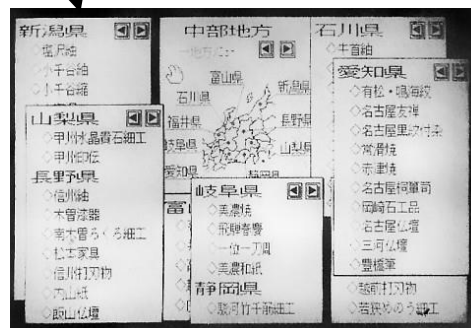 新潟県
◇塩沢紬
◇小千谷紬
◇小千谷縮
山梨県
◇甲州水晶貴石細工
◇甲州印伝
長野県
◇信州紬
◇木曽漆器
◇南木曽ろくろ細工
◇松本家具
◇信州打刃物
◇内山紙
◇飯山仏壇
中部地方
富山県
新潟県
石川県
福井県
長野県
岐阜県
山梨県
愛知県
静岡県
岐阜県
◇美濃焼
◇飛騨春慶
◇一位一刀彫
◇美濃和紙
静岡県
◇駿河竹千筋細工
石川県
◇牛首紬
愛知県
◇有松・鳴海絞
◇名古屋友禅
◇名古屋黒紋付染
◇常滑焼
◇赤津焼
◇名古屋桐箪司
◇岡崎石工品
◇名古屋仏壇
◇三河仏壇
◇豊橋筆
◇越前打刃物
◇若狭めのう細工